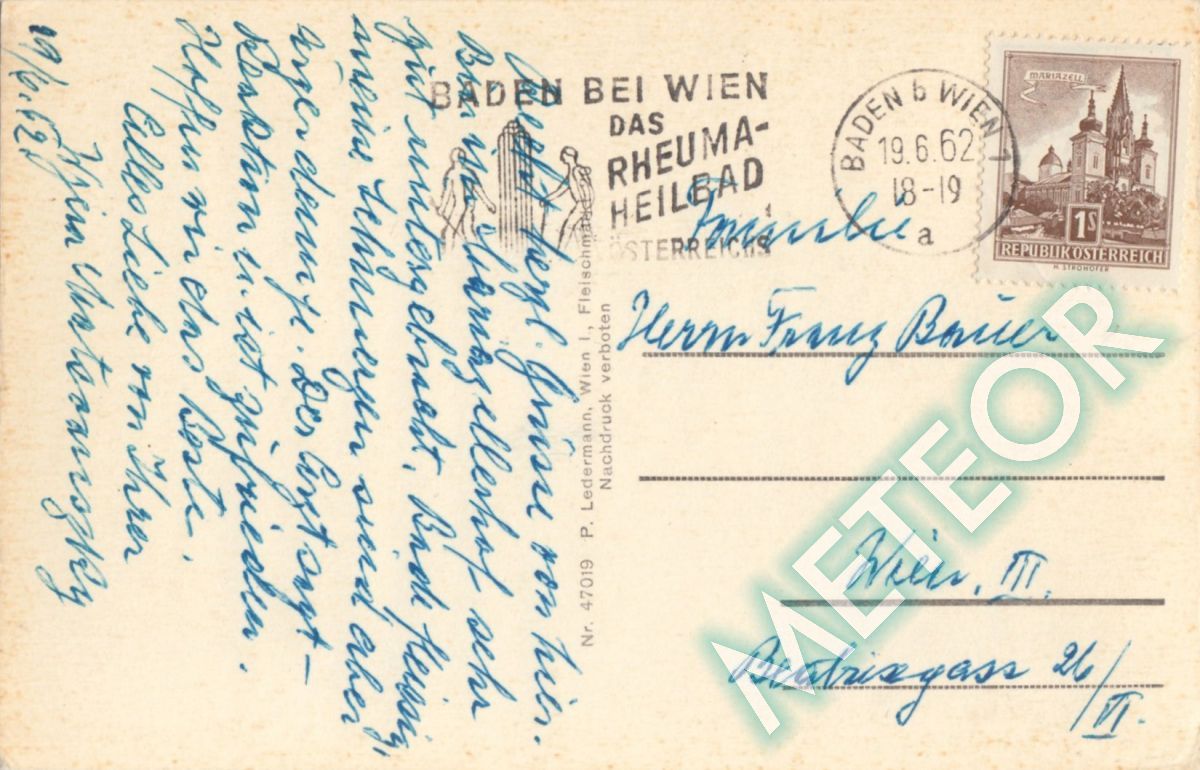 BADEN BEI WIEN
DAS
RHEUMA-
HEILBAD
ÖSTERREICHS
BADEN b WIEN 1
19.6.62
18-19
a
MARIAZELL
1S
REPUBLIK ÖSTERREICH
H. STROHOFER
herzl. Grüsse von hier.
Bin im Mariazellerhof sehr
gut untergebracht. Bade fleissig,
meine Schmerzen sind aber
ungeheure. Der Arzt sagt –
Reaktion u. ist zufrieden.
Hoffen wir das Beste.
Alles Liebe von Ihrer
19/6. 62
Nr. 47019 P. Ledermann, Wien I, Fleischmarkt
Nachdruck verboten
Familie
Herrn Franz Bauer
Wien, III.
Beatrixgasse 26/
VI.
METEOR